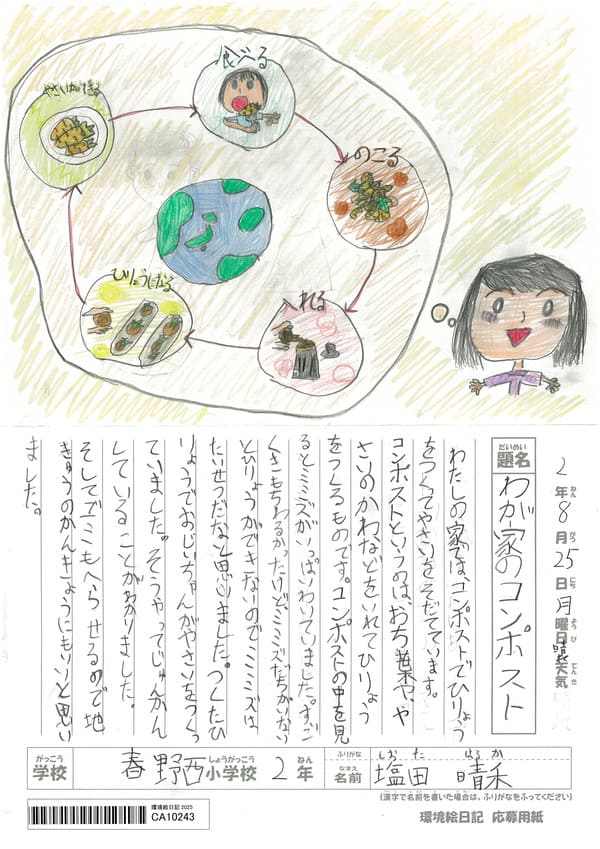 食べる
やさいができる
のこる
ひりょうになる
入れる
2年8月25日月曜日晴れ天気
ねん
がつ
にち
ようび
てんき
だいめい
題名
わが家のコンポスト
わたしの家では、コンポストでひりょう
をつくってやさいをそだてています。
コンポストというのは、おち葉や、や
さいのかわなどをいれてひりょう
をつくるものです。コンポストの中を見
るとミミズがいっぱいわいていました。すごく
くさもちわるかったけど、ミミズたちがいない
とひりょうができないのでミミズは
たいせつだなと思いました。つくったひ
りょうでおじいちゃんがやさいをつくっ
ていました。そうやってじゅんかん
していることがわかりました。
そしてゴミもへらせるので地
きゅうのかんきょうにもいいと思い
ました。
がっこう
学校
春野西小学校
しょうがっこう
2年
ねん
ふりがな
しおた はるか
なまえ
名前
塩田 晴禾
(漢字で名前を書いた場合は、ふりがなをふってください)
環境絵日記2025
CA10243
環境絵日記 応募用紙